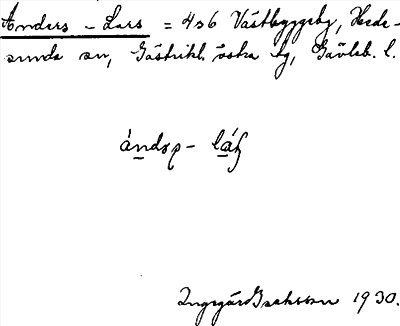 Anders-Lars = 4s6 Västbyggeby, Hede-
sunda sn, Gästrikl. östra tg, Gävleb. l.
Ingegärd 1930.